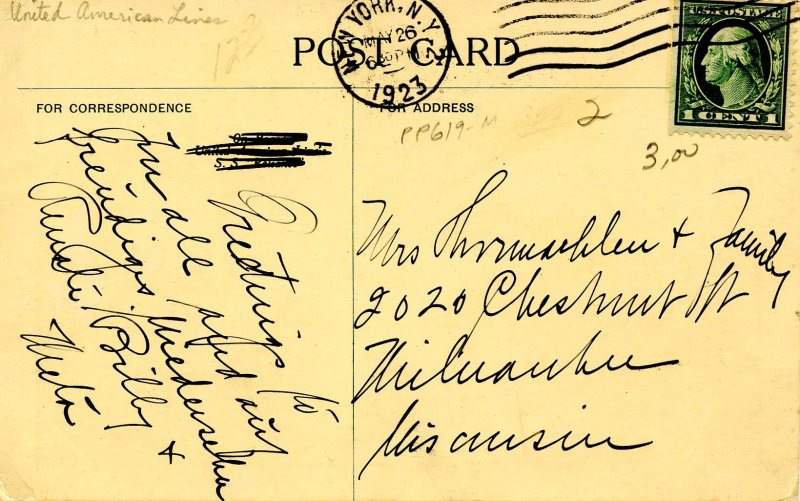 United American Lines
POST CARD
NEW YORK, N.Y.
MAY 26
6 30 PM
1923
U.S. POSTAGE
1 CENT 1
FOR CORRESPONDENCE
FOR ADDRESS
PP619-M
2
3,00
Greetings to
you all and auf
freudiges Wiedersehn
Billy +
Meta
Mrs Thormaehlen + Family
2020 Chestnut St
Milwaukee
Wisconsin